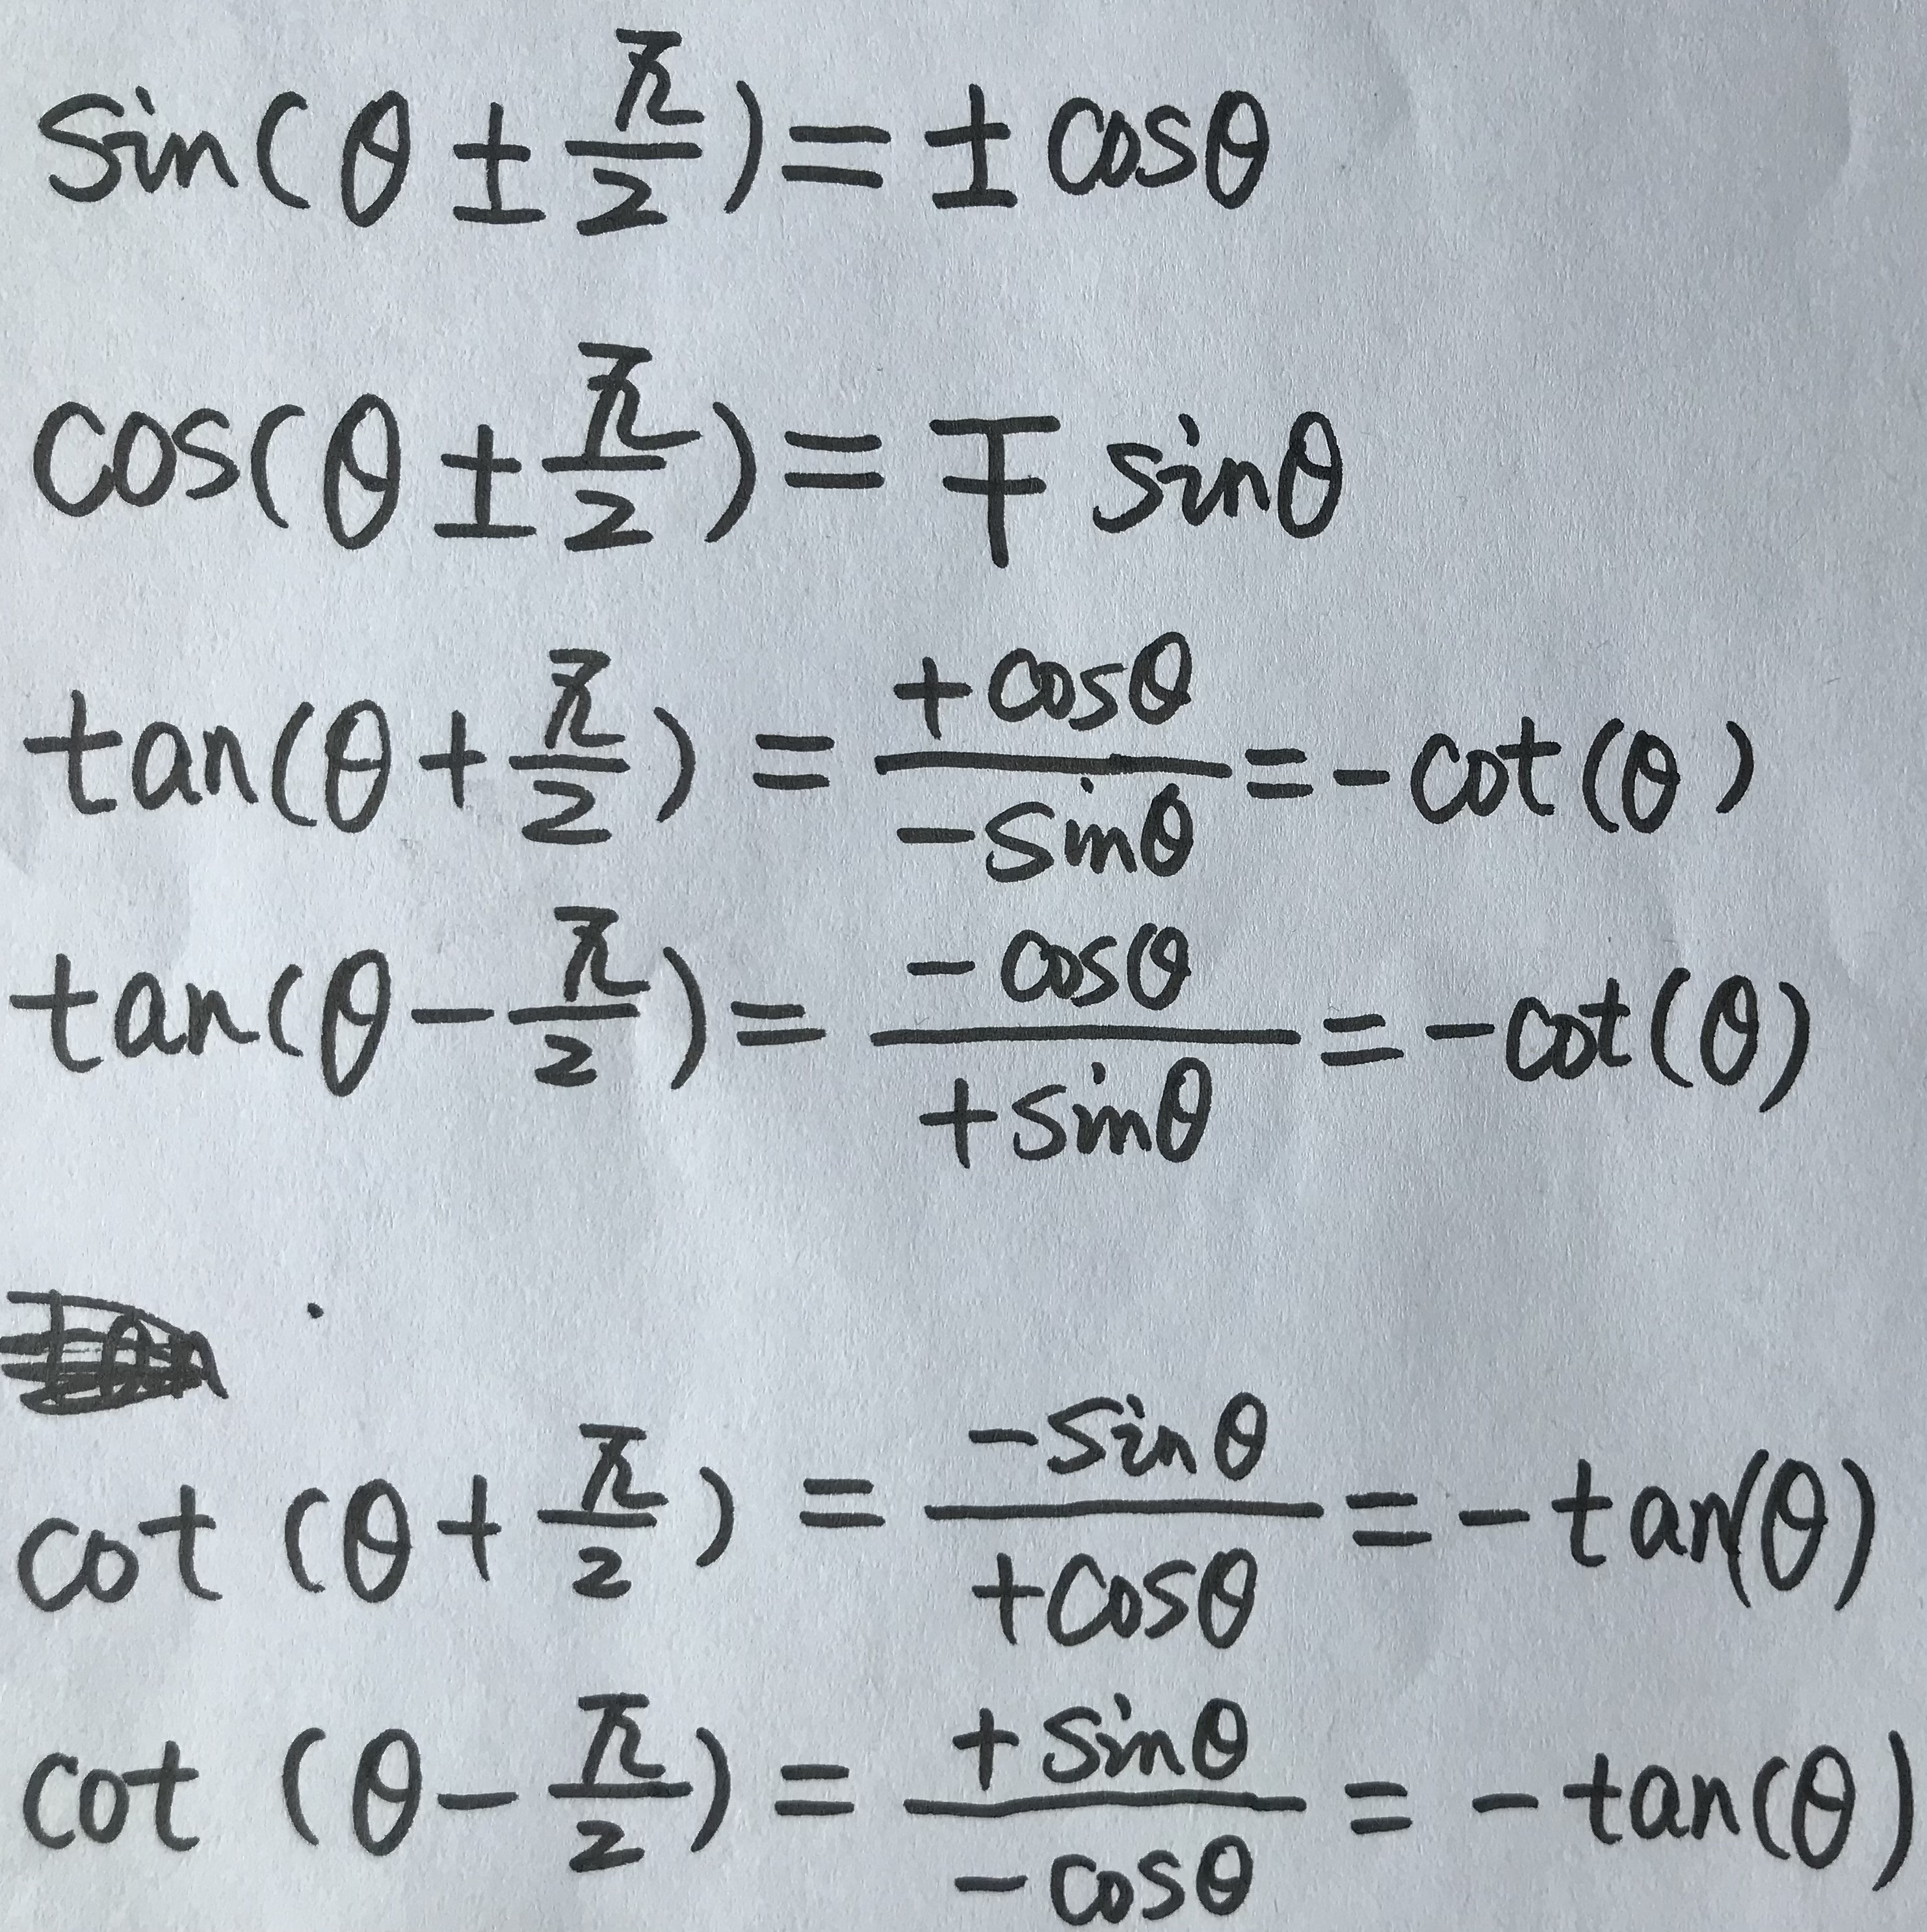 sin(θ ± π/2) = ± cosθ
cos(θ ± π/2) = ∓ sinθ
tan(θ + π/2) = +cosθ/-sinθ = -cot(θ)
tan(θ - π/2) = -cosθ/+sinθ = -cot(θ)
cot (θ + π/2) = -sinθ/+cosθ = -tan(θ)
cot (θ - π/2) = +sinθ/-cosθ = -tan(θ)